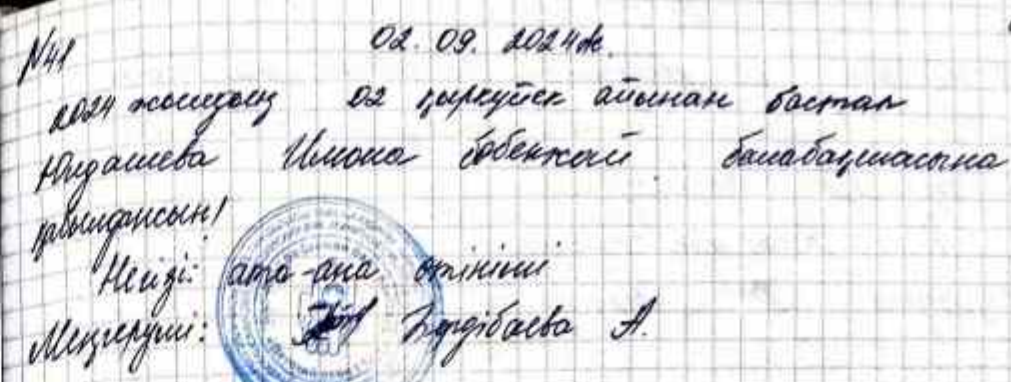 №41 02. 09. 2024ж.
2024 жылдың 02 қыркүйек айынан бастап
Юлдашева Имона бөбекжай балабақшасына
қабылдансын!
Негізі: ата-ана өтініші
Меңгеруші: Зурдібаева А.